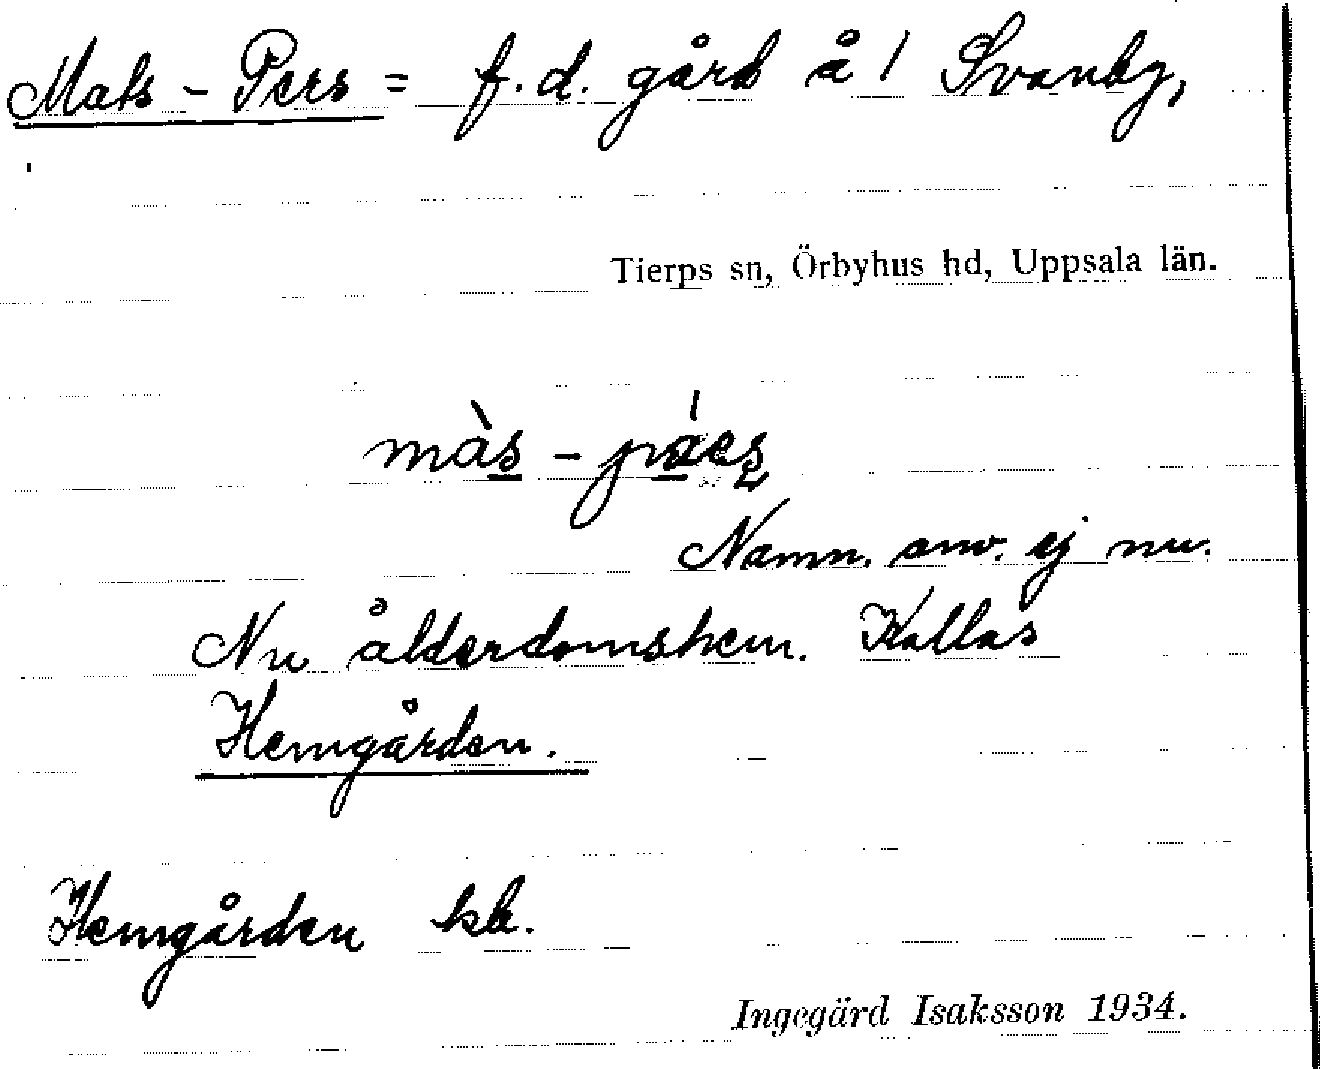 Mats - Pers = f.d. gård å 1 Svanby,
Tierps sn, Örbyhus hd, Uppsala län.
Namn. anv. ej nu.
Nu ålderdomshem. Kallas
Hemgården.
Hemgården kb.
Ingegärd Isaksson 1934.